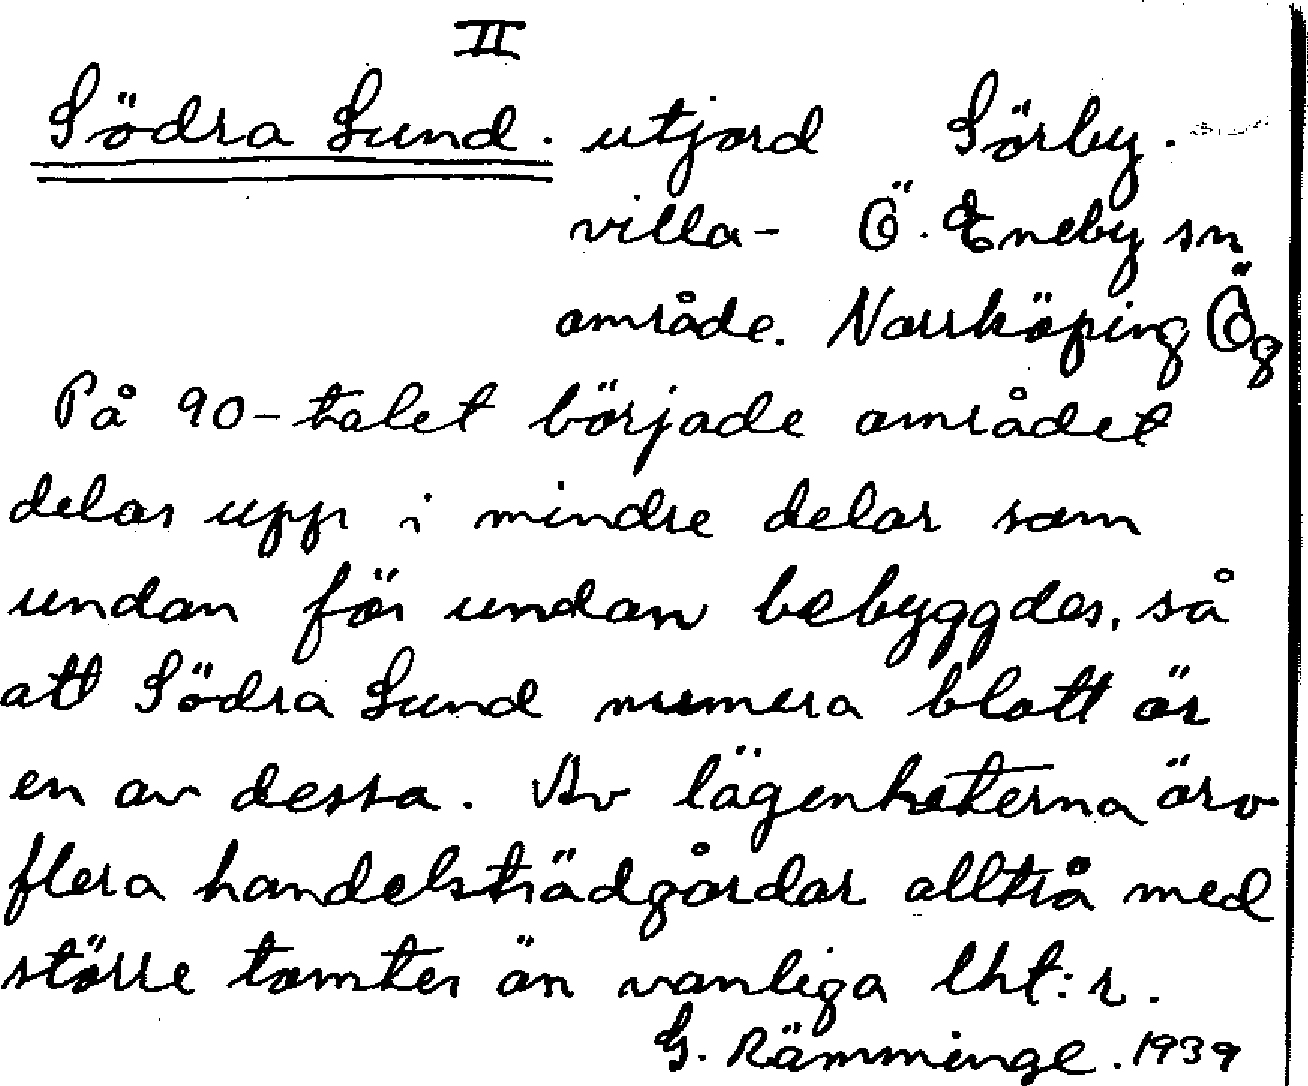 II
Södra Sund. utjord Sörby.
villa- Ö. Eneby sn
område. Norrköping Ög
På 90-talet började området
delas upp i mindre delar som
undan för undan bebyggdes, så
att Södra Sund numera blott är
en av dessa. Av lägenheterna äro
flera handelsträdgårdar alltså med
större tomter än vanliga lht:r.
G. Rämminge. 1939